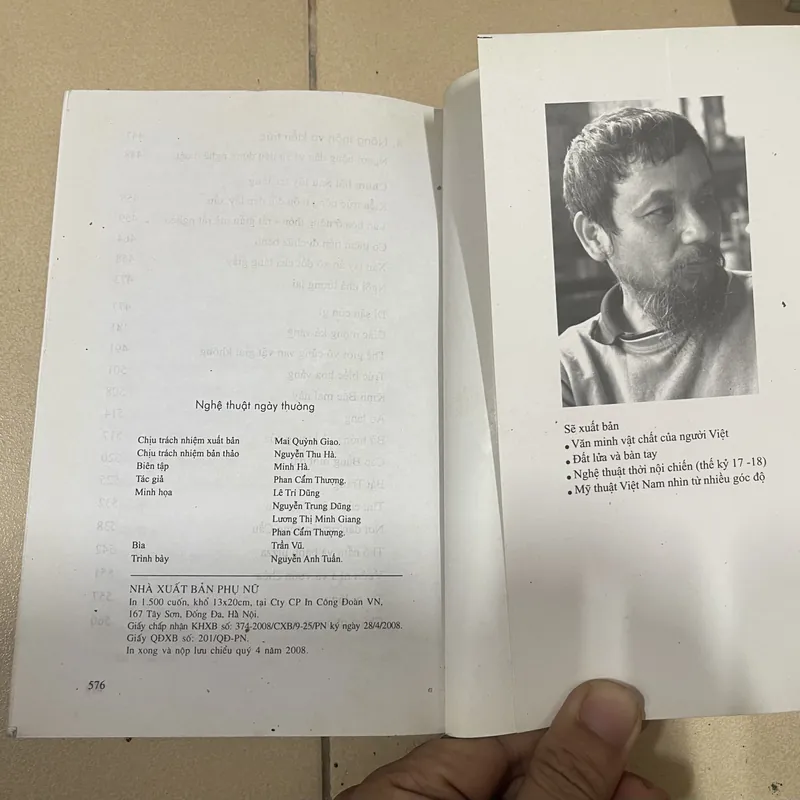 Nghệ thuật ngày thường
Chịu trách nhiệm xuất bản Mai Quỳnh Giao.
Chịu trách nhiệm bản thảo Nguyễn Thu Hà.
Biên tập Minh Hà.
Tác giả Phan Cẩm Thượng.
Minh họa Lê Trí Dũng
Nguyễn Trung Dũng
Lương Thị Minh Giang
Phan Cẩm Thượng.
Bìa Trần Vũ.
Trình bày Nguyễn Anh Tuấn.
NHÀ XUẤT BẢN PHỤ NỮ
In 1.500 cuốn, khổ 13x20cm, tại Cty CP In Công Đoàn VN,
167 Tây Sơn, Đống Đa, Hà Nội.
Giấy chấp nhận KHXB số: 374-2008/CXB/9-25/PN ký ngày 28/4/2008.
Giấy QĐXB số: 201/QĐ-PN.
In xong và nộp lưu chiểu quý 4 năm 2008.
576
Sẽ xuất bản
• Văn minh vật chất của người Việt
• Đất lửa và bàn tay
• Nghệ thuật thời nội chiến (thế kỷ 17 -18)
• Mỹ thuật Việt Nam nhìn từ nhiều góc độ